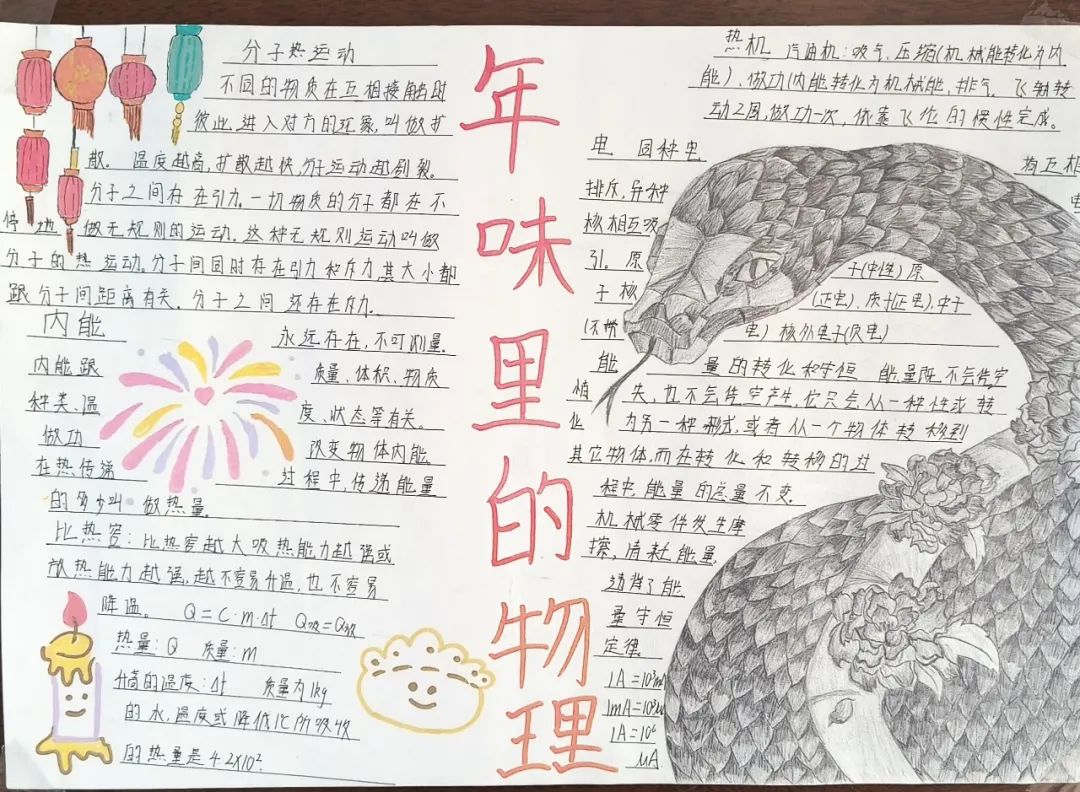 年味里的物理
分子热运动
不同的物质在互相接触时
彼此进入对方的现象,叫做扩
散。温度越高,扩散越快,分子运动越剧裂。
分子之间存在引力。一切物质的分子都在不
停地做无规则的运动。这种无规则运动叫做
分子的热运动。分子间同时存在引力和斥力,其大小都
跟分子间距离有关。分子之间还存在斥力.
内能
永远存在,不可测量.
内能跟质量、体积、物质
种类、温度、状态等有关。
做功改变物体内能
在热传递过程中,传递能量
的多少叫做热量.
比热容:比热容越大吸热能力越强或
放热能力越强,越不容易升温,也不容易
降温。Q=C·m·Δt Q吸=Q放
热量:Q 质量:m
升高的温度:Δt 质量为1kg
的水,温度或降低1℃所吸收
的热量是4.2×10².
热机 汽油机:吸气、压缩(机械能转化为内
能)、做功(内能转化为机械能,排气。飞轴转
动2周,做功一次,依靠飞轮的惯性完成。
电 同种电
构互相
排斥,异种电
核相互吸
引。原子(中性)原
子核(正电)、质子(正电)、中子
(不带电)核外电子(负电)
能量的转化和守恒 能量既不会凭空
消失,也不会凭空产生,它只会从一种性或转
化为另一种形式,或者从一个物体转移到
其它物体,而在转化和转移的过
程中,能量的总量不变.
机械零件发生摩
擦,消耗能量,
违背了能
量守恒
定律.
1A=10³mA
1mA=10³uA
1A=10⁶
μA